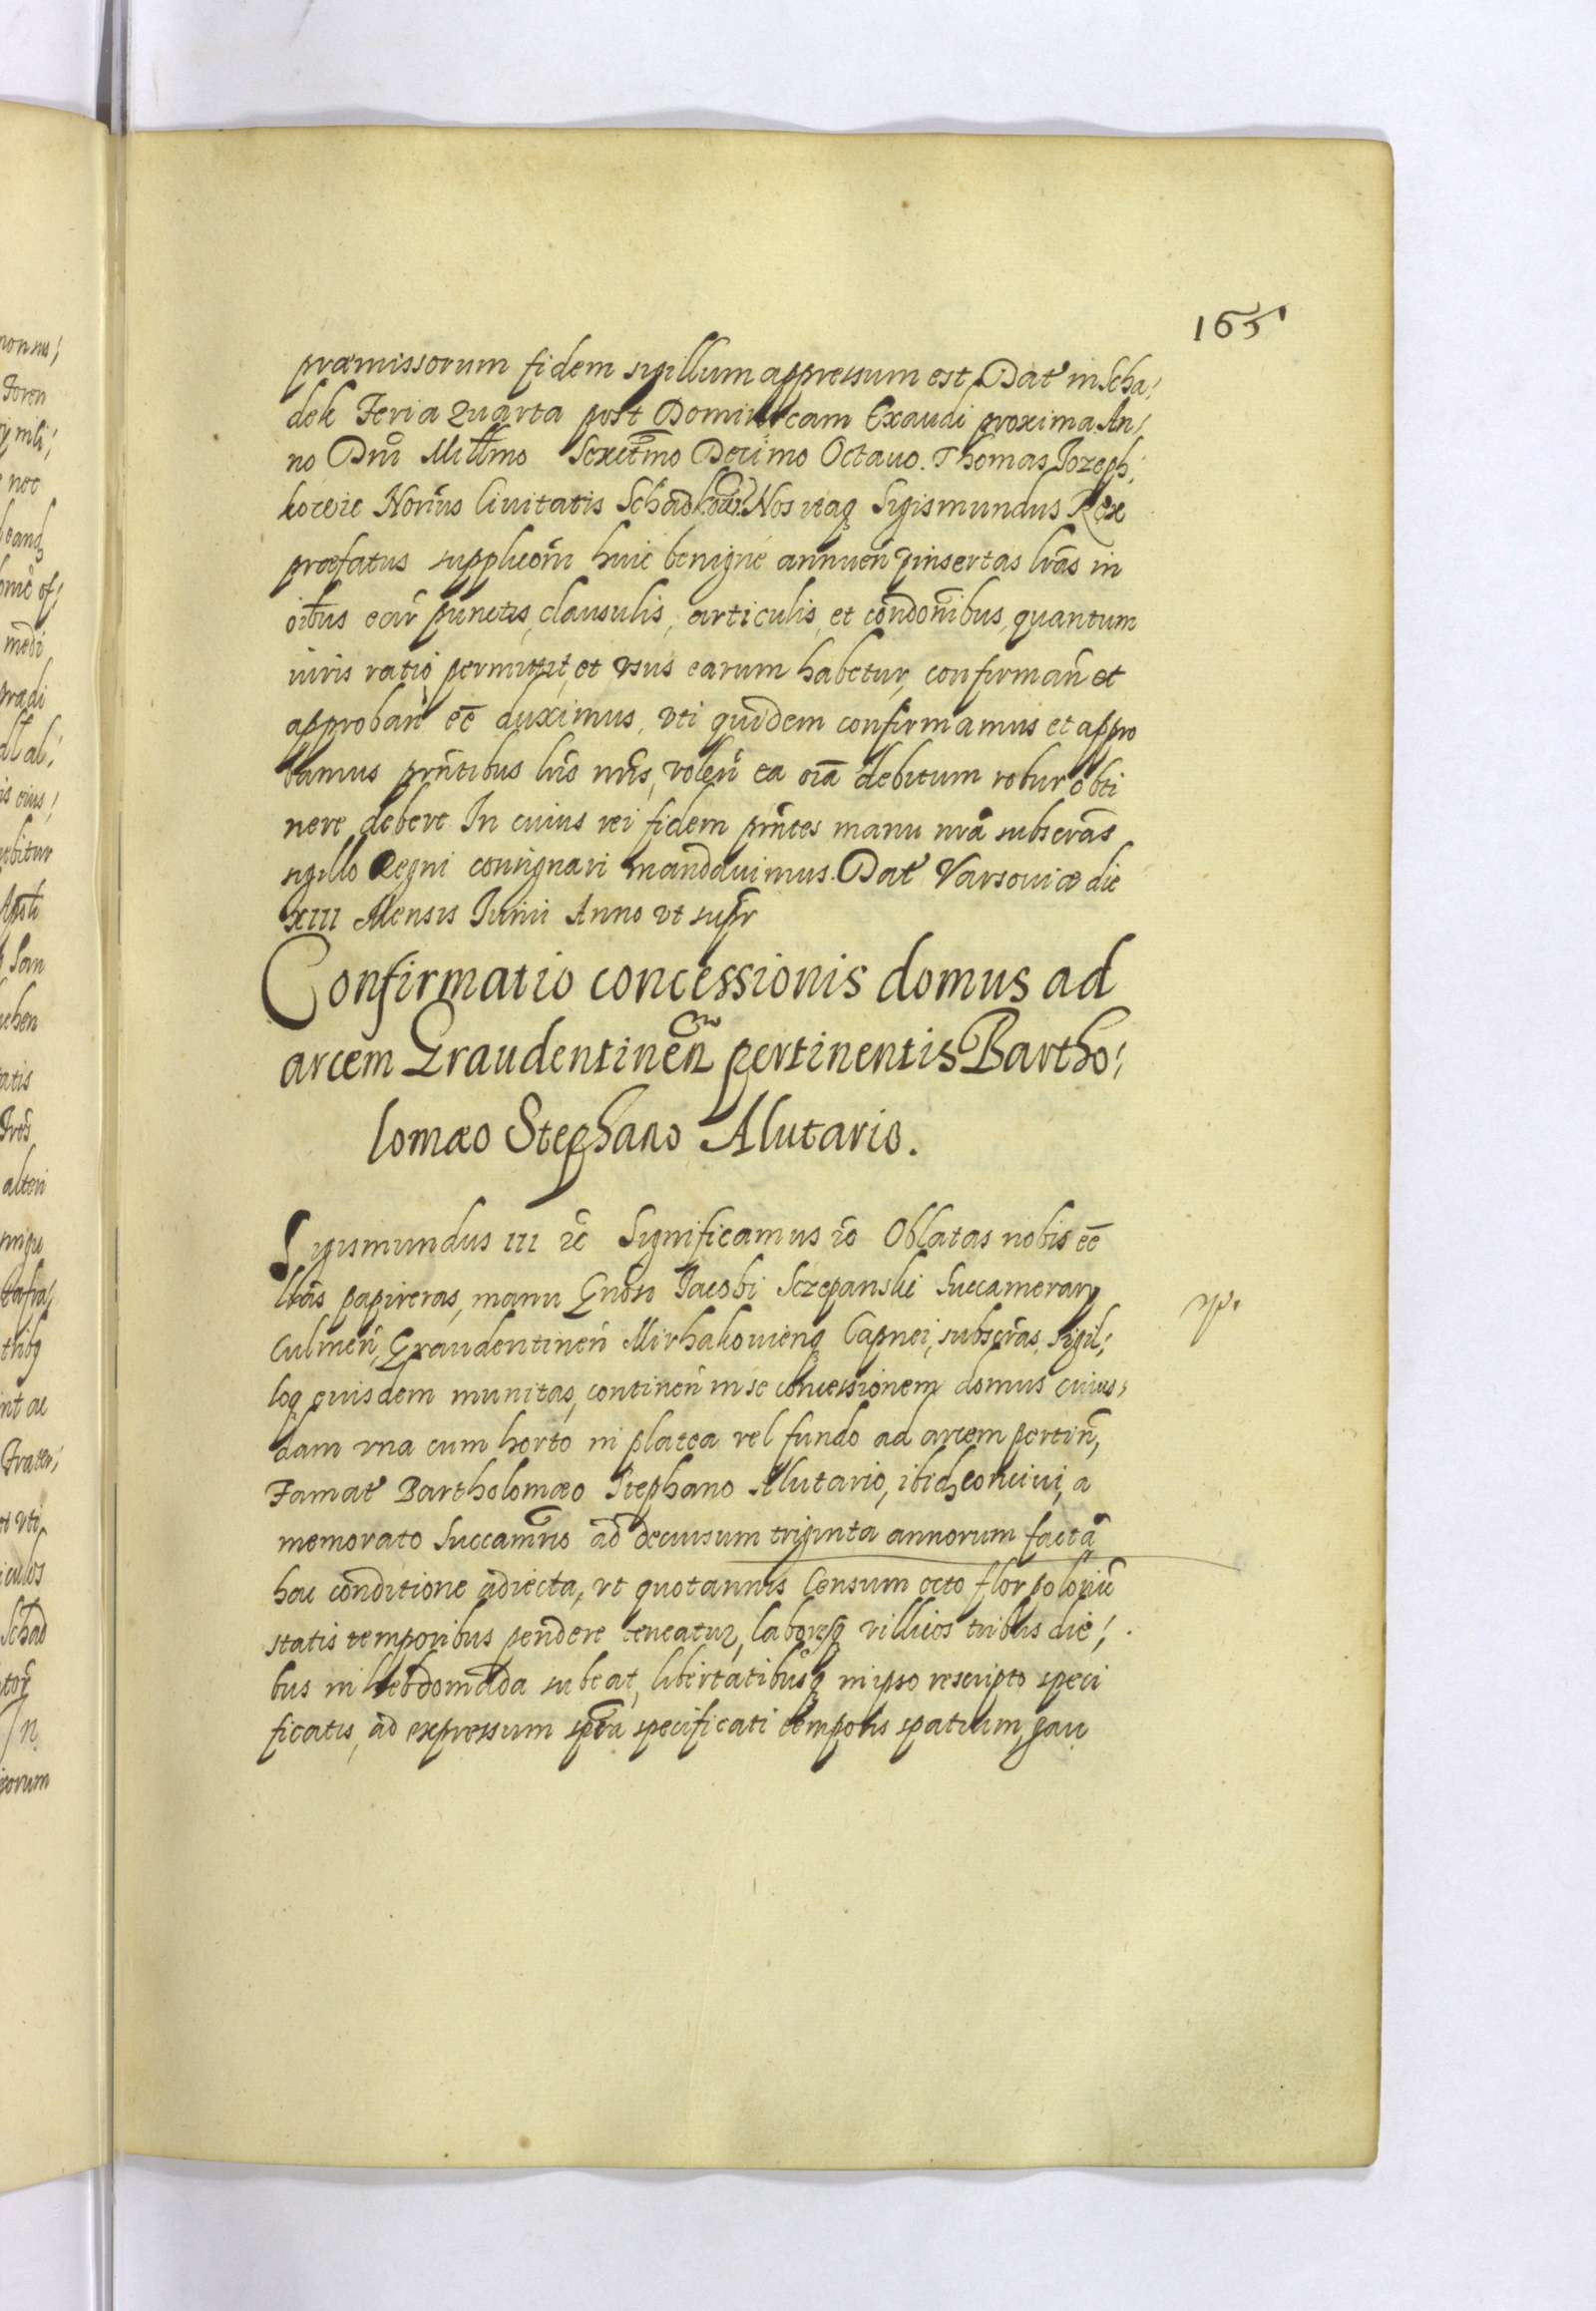 165
præmissorum fidem sigillum appressum est Dat̃ in Scha,
dek Feria Quarta post Dominicam Exaudi proxima. An,
no Dñi Mill̃mo Sexcẽt̃mo Decimo Octauo. Thomas Jozeph,
kowic Noriũs Ciuitatis Schadkouĩ. Nos itaq̃ Sigismundus Rex
præfatus supplicõni huic benignè annueñ pinsertas lr̃as in
oĩbus eãr punctis, clausulis, articulis, et condoñibus, quantum
iuris ratio permittit, et vsus earum habetur, confirmañ et
approbañ eẽ duximus, vti quidem confirmamus et appro
bamus prñtibus lrĩs nr̃is, voleñ ea oĩa debitum robur obti
nere debere. In cuius rei fidem prñtes manu nr̃a subscr̃as
sigillo Regni consignari mandauimus. Dat̃ Varsouiæ die
XIII Mensis Junii Anno vt supr̃
Confirmatio concessionis domus ad
arcem Graudentineñ pertinentis Bartho,
lomæo Stephano Alutario.
Sigismundus III ɾc̃ Significamus ɾc̃ Oblatas nobis eẽ
lr̃as papireas, manu Gñosi Jacobi Sczepanski Succamerarij
Culmeñ, Graudentineñ Mirhakouienq̃ Capnei, subscr̃as, sigil,
loq̃ eiusdem munitas, contineñ in se concessionem domus cuius,
dam vna cum horto in platea vel fundo ad arcem pertiñ,
Famat̃ Bartholomæo Stephano Alutario, ibid̃ conciui, a
memorato Succamr̃io ad decursum triginta annorum factã
hac conditione adiecta, vt quotannis Censum octo flor̃ poloniĉ
statis temporibus pendere teneatur, laboresq̃ villicos tribus die,
bus in hebdomada subeat, libertatibusq̃ in ipso rescripto speci
ficatis, ad expressum spr̃a specificati temporis spatium, gau